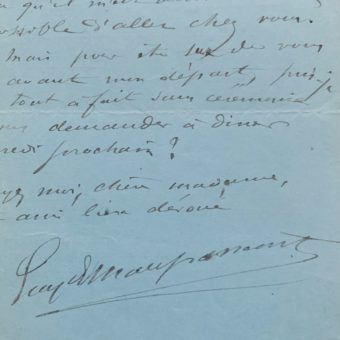 qu'il m'est
possible d'aller chez vous.
Mais pour être sûr de vous
avant mon départ, puis-je
tout à fait sans cérémonie
vous demander à dîner
prochain ?
moi, chère madame,
ami bien dévoué
Guy de Maupassant